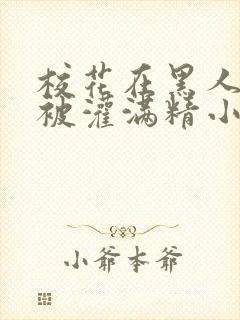 校花在黑人
被灌满精小
小爷本爷